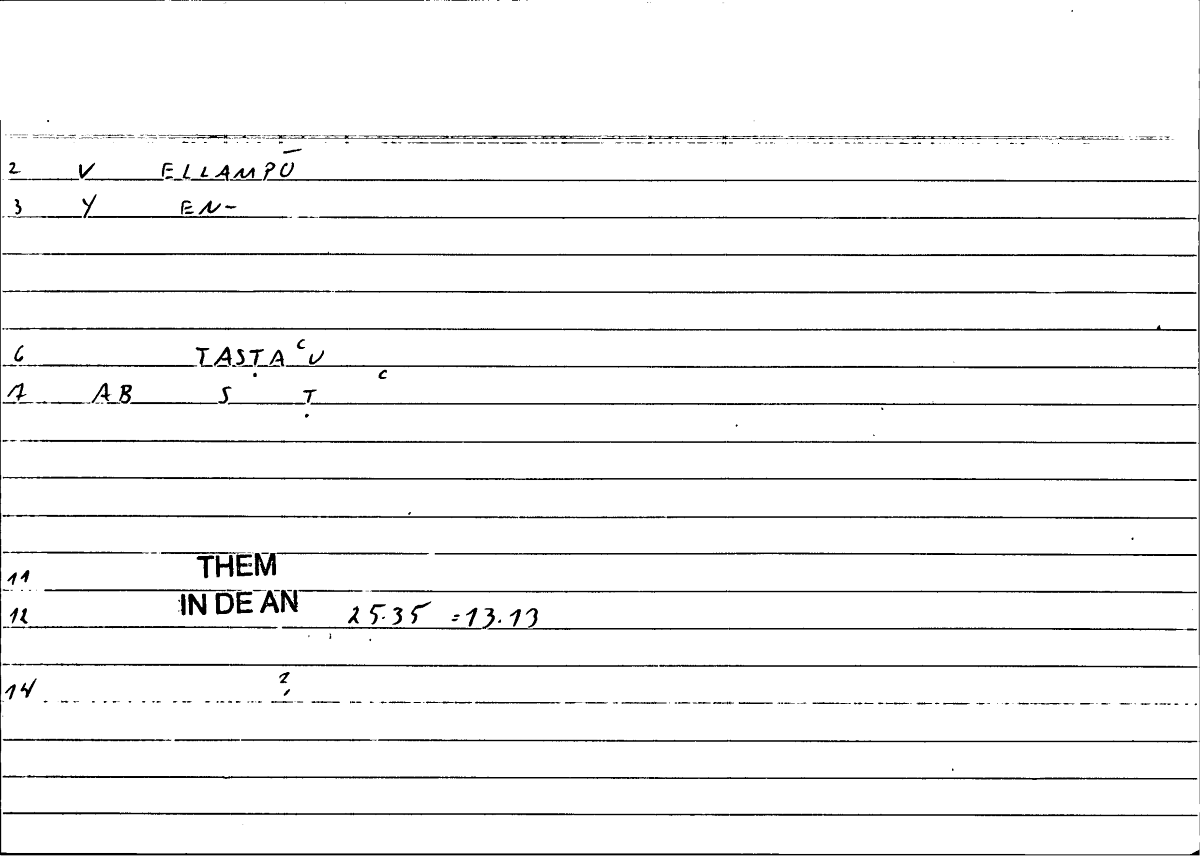 2 V ELLAMPŪ
3 Y EN-
6 TASṬA ͨU
7 AB S Ṭ c
11 THEM
12 IN DE AN 25.35 =13.13
14 ?